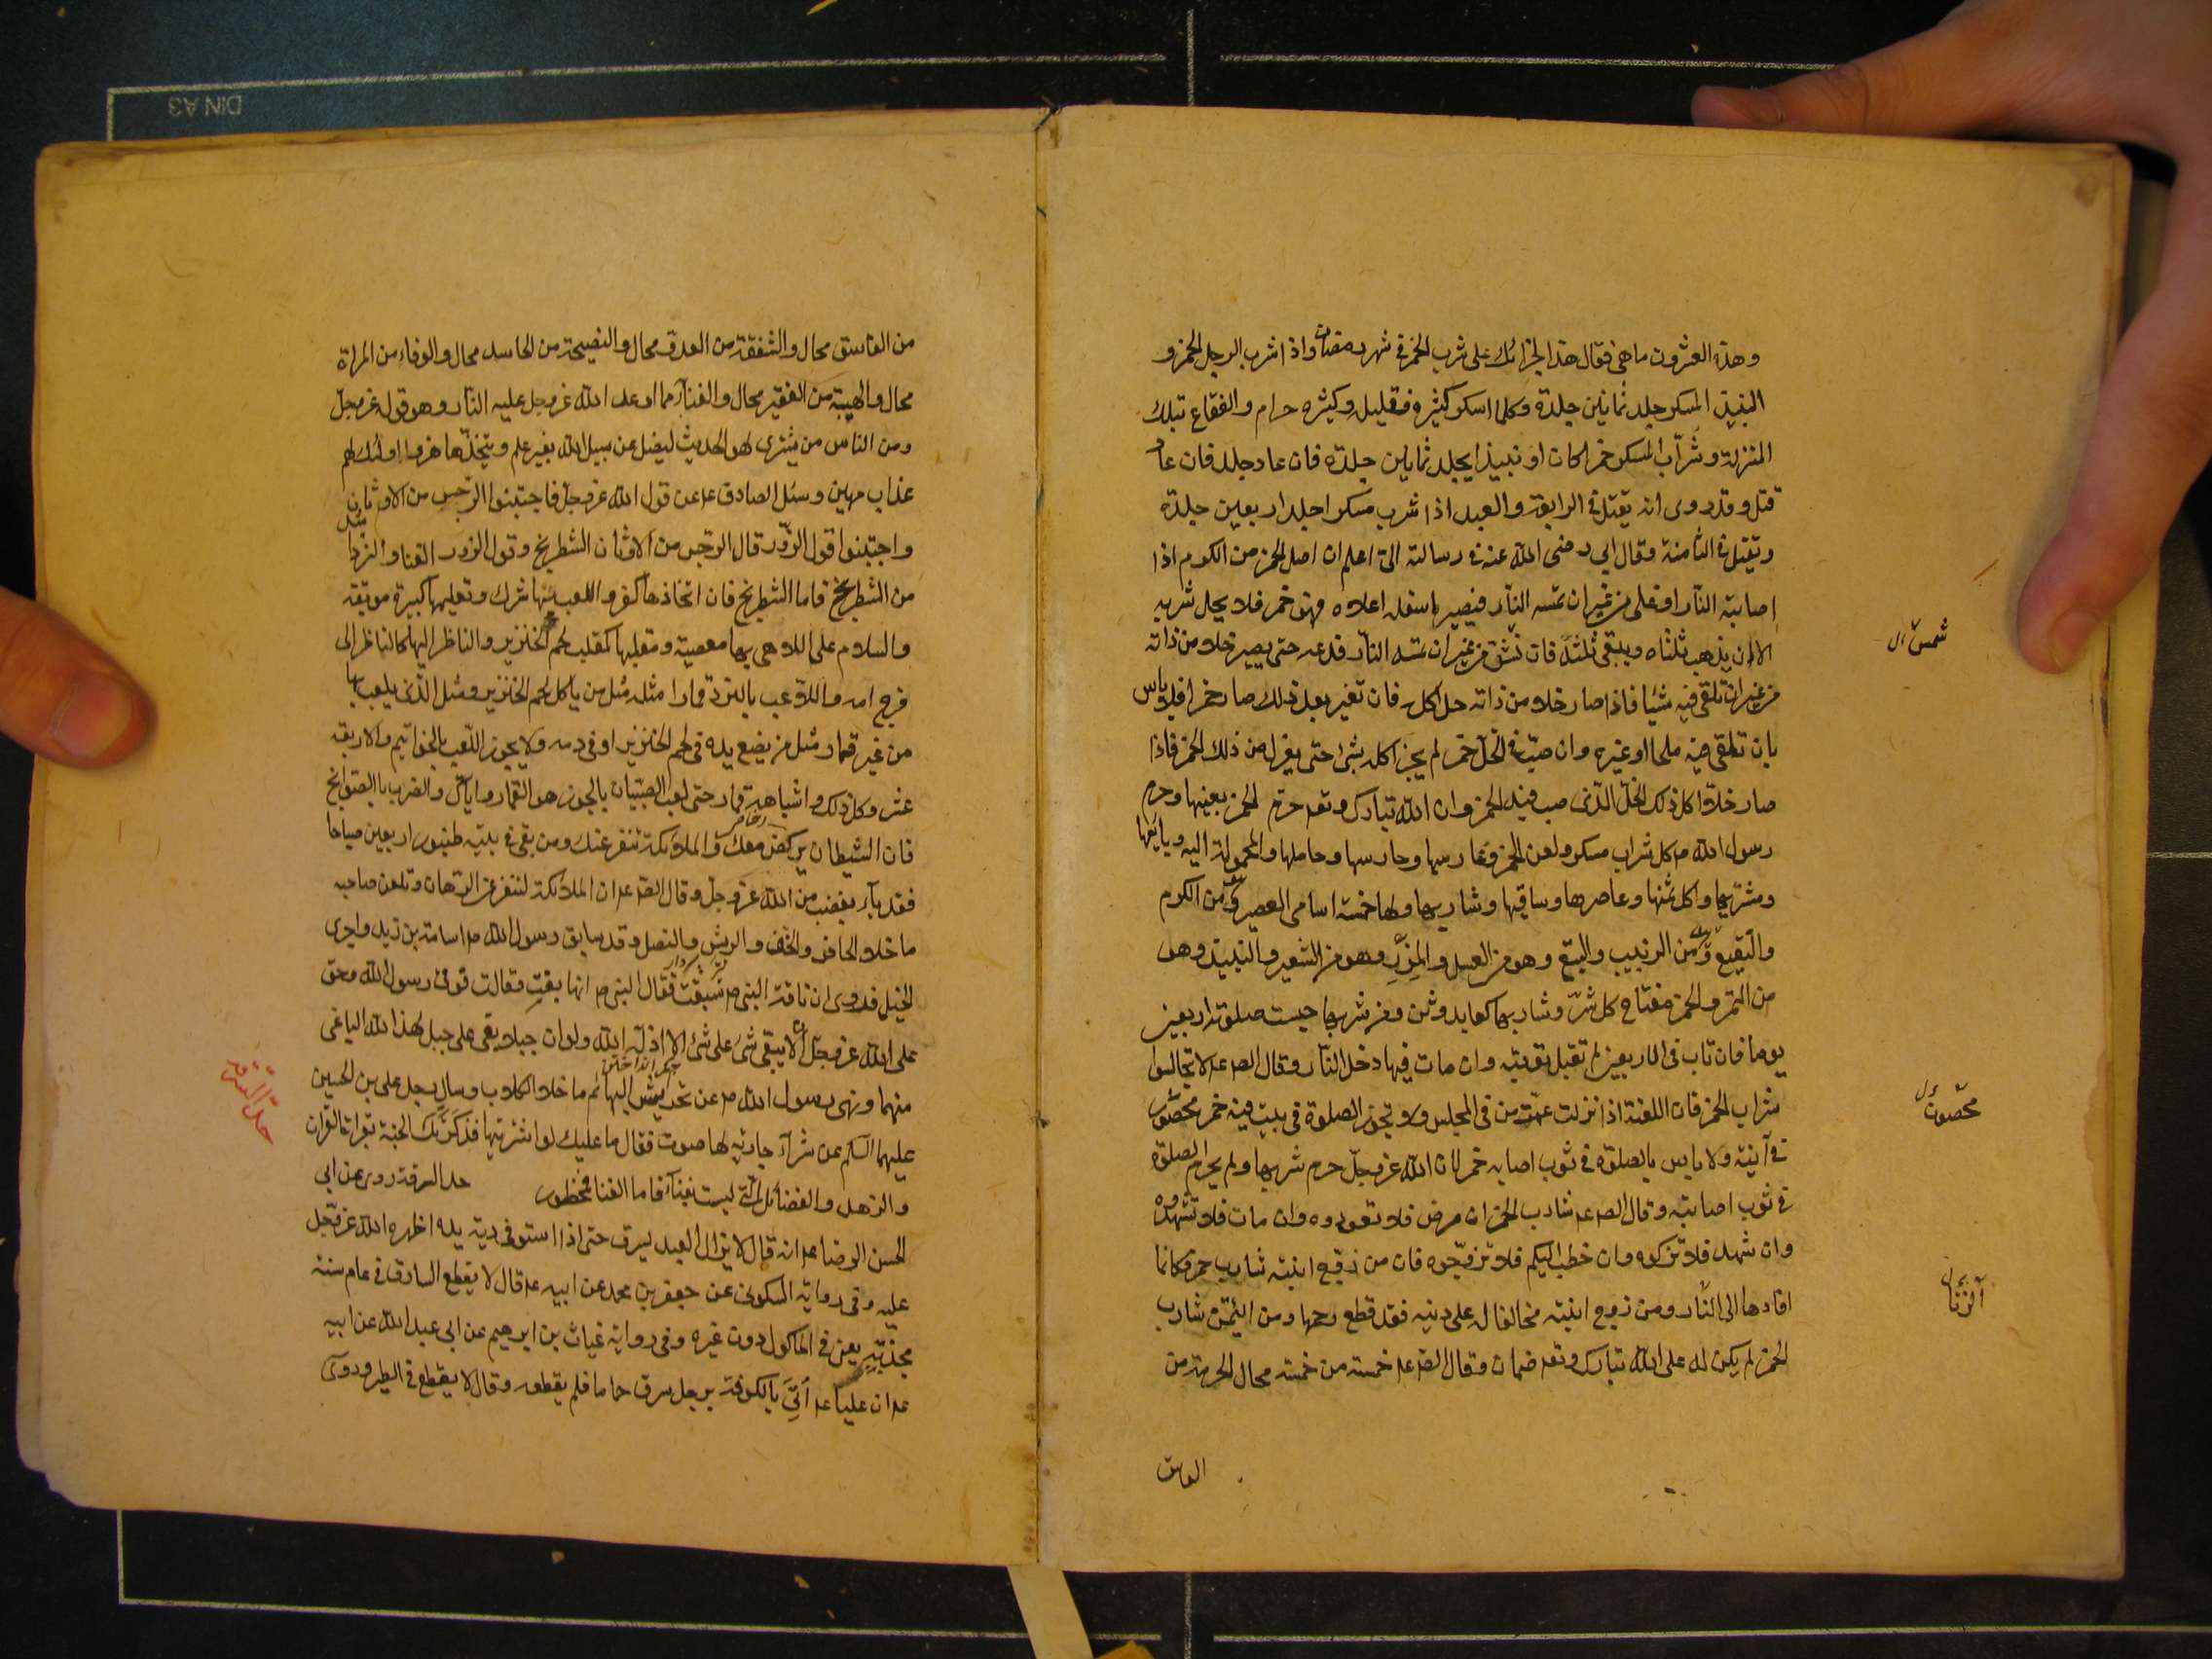 وهذه العشرون ما هي فقال هذا لجرأتك على شرب الخمر في شهر رمضان واذا شرب الرجل الخمر و
النبيذ المسكر جلد ثمانين جلدة وكلما اسكر كثيره فقليله وكثيره حرام والفقاع بتلك
المنزلة وشرّاب المسكر خمرا كان او نبيذا يجلد ثمانين جلدة فان عاد جلد فان عاد
قتل وقد روى انه يقتل في الرابعة والعبد اذا شرب مسكرا جلد اربعين جلدة
ويقتل في الثامنة وقال ابي رضى الله عنه في رسالته الىّ اعلم ان اصل الخمر من الكرم اذا
اصابته النّار او غلى من غير ان تمسه النّار فيصير اسفله اعلاه فهو خمر فلا يحل شربه
الا ان يذهب ثلثاه ويبقى ثلثه فان نشّ من غير ان تمسه النّار فدعه حتى يصير خلا من ذاته
من غير ان تلقى فيه شيئا فاذا صار خلا من ذاته حل اكله فان تغير بعد ذلك صار خمرا فلا باس
بان تلقى فيه ملحا او غيره وان صبّ في الخلّ خمر لم يجز اكله حتى يعزل من ذلك الخمر فاذا
صار خلّا اكل ذلك الخلّ الذى صب فيه الخمر وان الله تبارك وتعه حرّم الخمر بعينها وحرم
رسول الله ص كل شراب مسكر ولعن الخمر وغارسها وحارسها وحاملها والمحمولة اليه وبايعها
ومشتريها واكل ثمنها وعاصرها وساقيها وشاربها ولها خمسة اسامى العصير وهو من الكرم
والنقيع وهو من الزبيب والبتع وهو من العسل والمِزر وهو من الشعير والنبيذ وهو
من التمر والخمر مفتاح كل شرّ وشاربها كعابد وثن ومن شربها حبست صلوته اربعين
يوما فان تاب في الاربعين لم تقبل توبته وان مات فيها دخل النّار وقال الصه عه لا تجالسوا
شراب الخمر فان اللعنة اذا نزلت عمّت من في المجلس ولا تجوز الصلوة في بيت فيه خمر محصور
في آنية ولا باس بالصلوة في ثوب اصابه خمر لان الله عز وجلّ حرم شربها ولم يحرم الصلوة
في ثوب اصابته وقال الصه عه شارب الخمر ان مرض فلا تعودوه وان مات فلا تشهدوه
وان شهد فلا تزكوه وان خطب اليكم فلا تزوّجوه فان من زوج ابنته شارب خمر فكانما
قادها الى النّار ومن زوج ابنته مخالفا له على دينه فقد قطع رحمها ومن ائتمن شارب
الخمر لم يكن له على الله تبارك وتعه ضمان وقال الصه عه خمسة من خمسة محال الحرمة من
الفاسق
محصون
من الفاسق محال والشفقة من العدوّ محال والنصيحة من الحاسد محال والوفاء من المراة
محال والهيبة من الفقير محال والغنآء مما اوعد الله عز وجل عليه النّار وهو قوله عز وجلّ
ومن الناس من يشترى لهو الحديث ليضل عن سبيل الله بغير علم ويتخذها هزوا اولئك لهم
عذاب مهين وسئل الصادق عه عن قول الله عز وجلّ فاجتنبوا الرّجس من الاوثان
واجتنبوا قول الزّور قال الرّجس من الاوثان الشطرنج وقول الزور الغنا والنرد اشد
من الشطرنج فاما الشطرنج فان اتخاذها كفر واللعب بها شرك وتعليمها كبيرة موبقة
والسلام على اللاهى بها معصية ومقلبها كمقلب لحم الخنزير والناظر اليها كالناظر الى
فرج امه واللاعب بالنرد قمارا مثله مثل من ياكل لحم الخنزير ومثل الذى يلعب بها
من غير قمار مثل من يضع يده في لحم الخنزير او في دمه ولا يجوز اللعب بالخواتيم والاربعة
عشر وكل ذلك واشباهه قمار حتى لعب الصّبيان بالجوز هو القمار واياك والضرب بالصوانج
فان الشيطان يركض معك والملائكة تنفر عنك ومن بقى في بيته طنبور اربعين صباحا
فقد بآء بغضب من الله عز وجلّ وقال الصه عه ان الملائكة لتنفر عن الرّهان وتلعن صاحبه
ما خلا الحافر والخف والريش والنصل وقد سابق رسول الله ص اسامة بن زيد واجرى
الخيل فروى ان ناقة النبي ص سُبقت فقال النبي ص انها بغت وقالت فوقى رسول الله وحق
على الله عز وجلّ ان لا يبغى شئ على شئ الا اذلّه الله ولو ان جبلا بغى على جبل لهذا الله الباغى
منهما ونهى رسول الله ص عن تحريش البهائم ما خلا الكلاب وسال رجل على بن الحسين
عليهما السّلم عن شرآء جارية لها صوت فقال ما عليك لو اشتريتها فذكرتك الجنة بقراءة القران
والزهد والفضائل الّتي ليست بغنآء فاما الغنا فمحظور حد السرقة روى عن ابي
الحسن الرضا عه انه قال لا يزال العبد يسرق حتى اذا استوفى دية يده اظهره الله عز وجل
عليه وفى رواية السكونى عن جعفر بن محمد عن ابيه عه قال لا يقطع السارق في عام سنة
مجدبة يعنى في الماكول دون غيره وفى رواية غياث بن ابرهيم عن ابي عبد الله عن ابيه
عه ان عليا عه اُتِىَ بالكوفة برجل سرق حماما فلم يقطعه وقال لا يقطع في الطير وروى
حدّ السّرقة